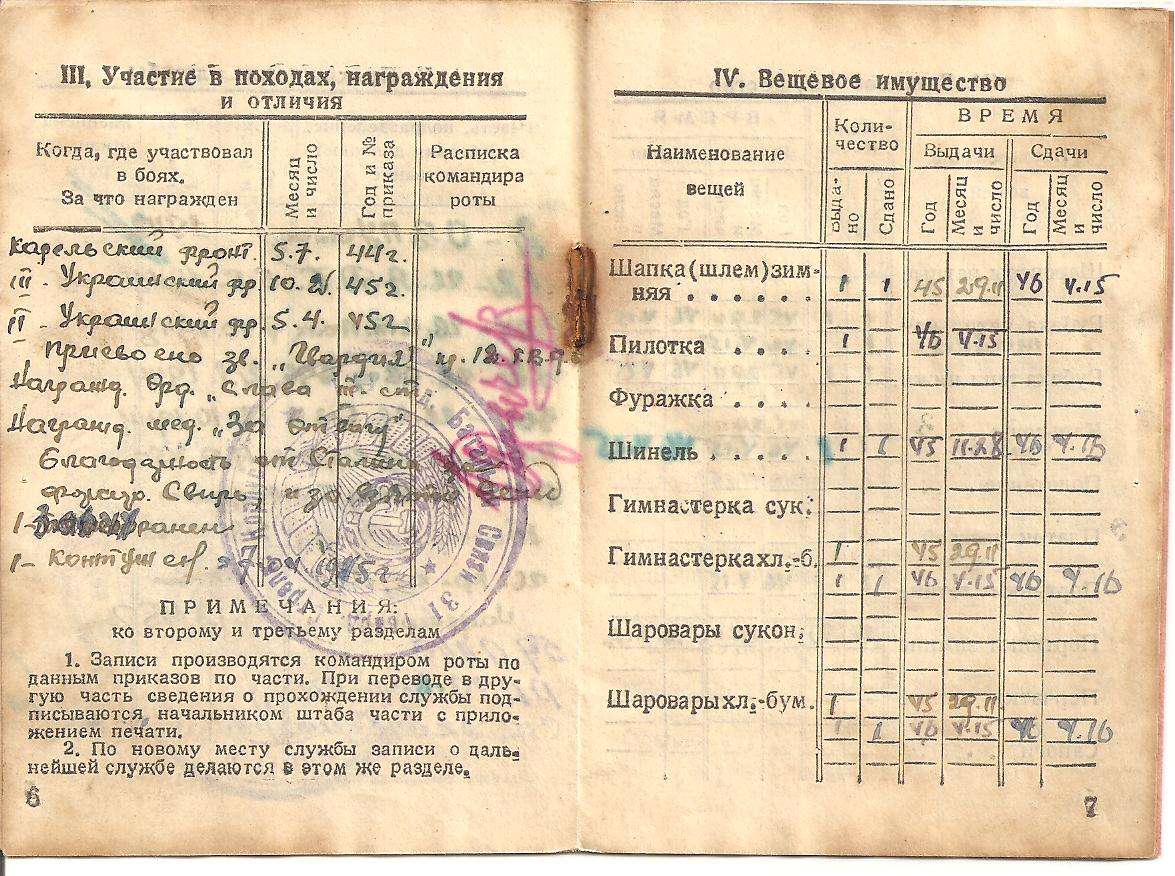 III. Участие в походах, награждения
и отличия
Когда, где участвовал
в боях.
За что награжден
Месяц
и число
Год и №
приказа
Расписка
командира
роты
Карельский фронт. 5.7. 44г.
III - Украинский фр. 10. 45г.
II - Украинский фр. 5.4. 45г.
Присвоено зв. „Гвардия"
Награжд. орд. „Слава III ст.
Награжд. мед. „За отвагу"
благодарность от Сталина за
форсир. Свирь, и за
1- ранен
1- Контужен. 1945г.
Связи
31
ПРИМЕЧАНИЯ:
ко второму и третьему разделам
1. Записи производятся командиром роты по
данным приказов по части. При переводе в дру-
гую часть сведения о прохождении службы под-
писываются начальником штаба части с прило-
жением печати.
2. По новому месту службы записи о даль-
нейшей службе делаются в этом же разделе.
6
IV. Вещевое имущество
Наименование
вещей
Коли-
чество
ВРЕМЯ
Выдачи Сдачи
Выда-
но
Сдано
Год
Месяц
и
число
Год
Месяц
и
число
Шапка (шлем) зим-
няя . . . . . . 1 1 45 29.11 46 4.15
Пилотка . . . . 1 46 4.15
Фуражка . . . .
Шинель . . . . . 1 1 45 11.28 46 4.16
Гимнастерка сук.
Гимнастерка хл.-б. 1 45 29.11
1 1 46 4.15 46 4.16
Шаровары сукон.
Шаровары хл.-бум. 1 45 29.11
1 1 46 4.15 46 4.16
7